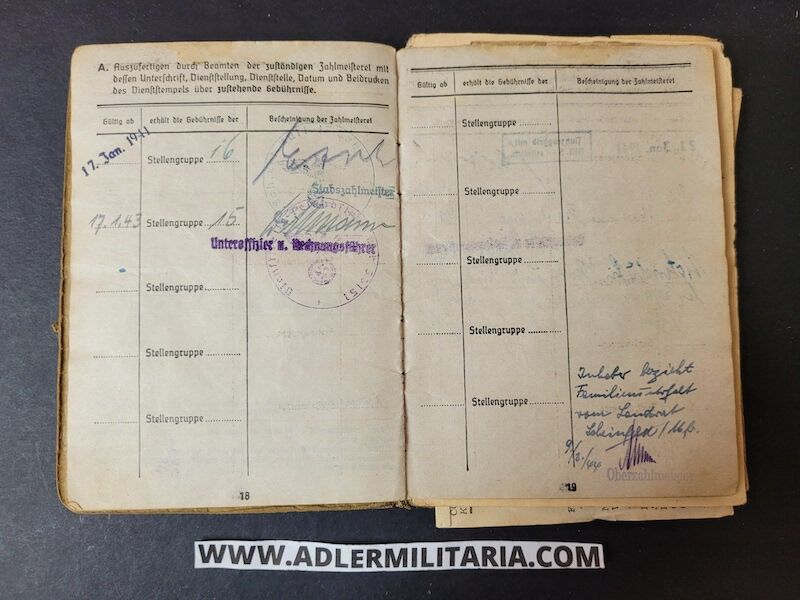 A. Auszufertigen durch Beamten der zuständigen Zahlmeisterei mit
dessen Unterschrift, Dienststellung, Dienststelle, Datum und Beidrucken
des Dienststempels über zustehende Gebührnisse.
Gültig ab erhält die Gebührnisse der Bescheinigung der Zahlmeisterei
17. Jan. 1941
Stellengruppe 16
Stabszahlmeister
17.1.43 Stellengruppe 15
Unteroffizier u. Rechnungsführer
Stellengruppe
Stellengruppe
Stellengruppe
18
Gültig ab erhält die Gebührnisse der Bescheinigung der Zahlmeisterei
Stellengruppe
Stellengruppe
Stellengruppe
Stellengruppe
Stellengruppe
Inhaber bezieht
Familienunterhalt
vom Landrat
Scheinfeld / Mfr.
Oberzahlmeister
19
WWW.ADLERMILITARIA.COM